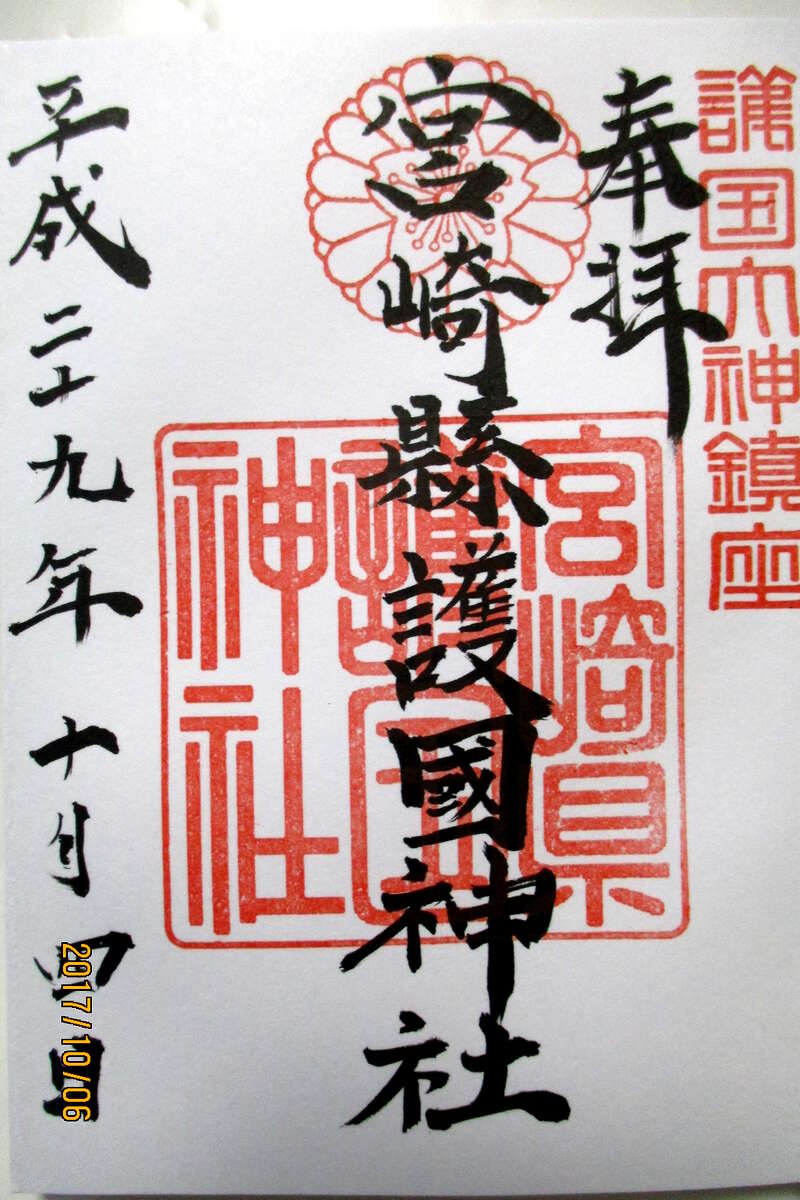 護国大神鎮座
奉拝
宮崎縣護國神社
宮崎県
護国
神社
平成二十九年十月四日
2017/10/06